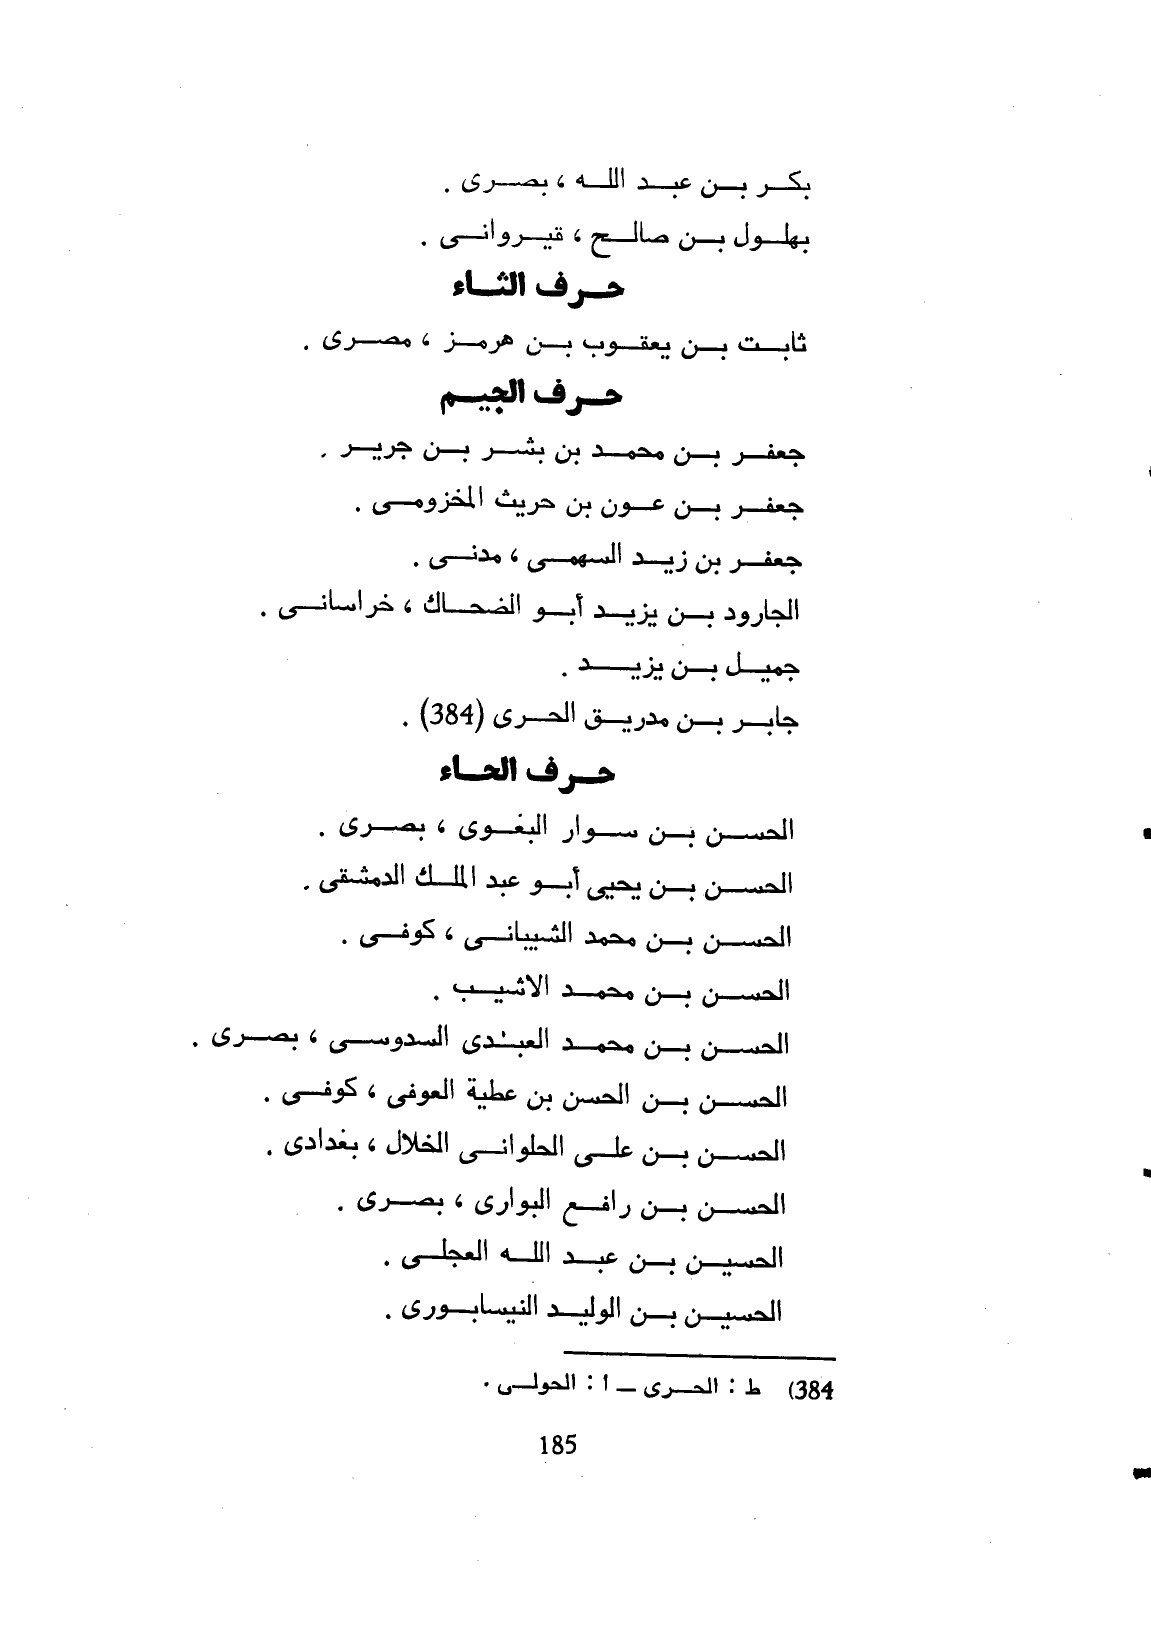 بكر بن عبد الله ، بصرى .
بهلول بن صالح ، قيروانى .
حرف الثاء
ثابت بن يعقوب بن هرمز ، مصرى .
حرف الجيم
جعفر بن محمد بن بشر بن جرير .
جعفر بن عون بن حريث المخزومى .
جعفر بن زيد السهمى ، مدنى .
الجارود بن يزيد أبو الضحاك ، خراسانى .
جميل بن يزيد .
جابر بن مدريق الحرى (384) .
حرف الحاء
الحسن بن سوار البغوى ، بصرى .
الحسن بن يحيى أبو عبد الملك الدمشقى .
الحسن بن محمد الشيبانى ، كوفى .
الحسن بن محمد الاشيب .
الحسن بن محمد العبدى السدوسى ، بصرى .
الحسن بن الحسن بن عطية العوفى ، كوفى .
الحسن بن على الحلوانى الخلال ، بغدادى .
الحسن بن رافع البوارى ، بصرى .
الحسين بن عبد الله العجلى .
الحسين بن الوليد النيسابورى .
384) ط : الحرى ــ ا : الحولى .
185